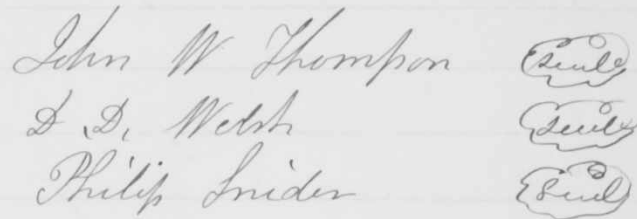 John W Thompson Seal
D. D. Welsh Seal
Philip Snider Seal